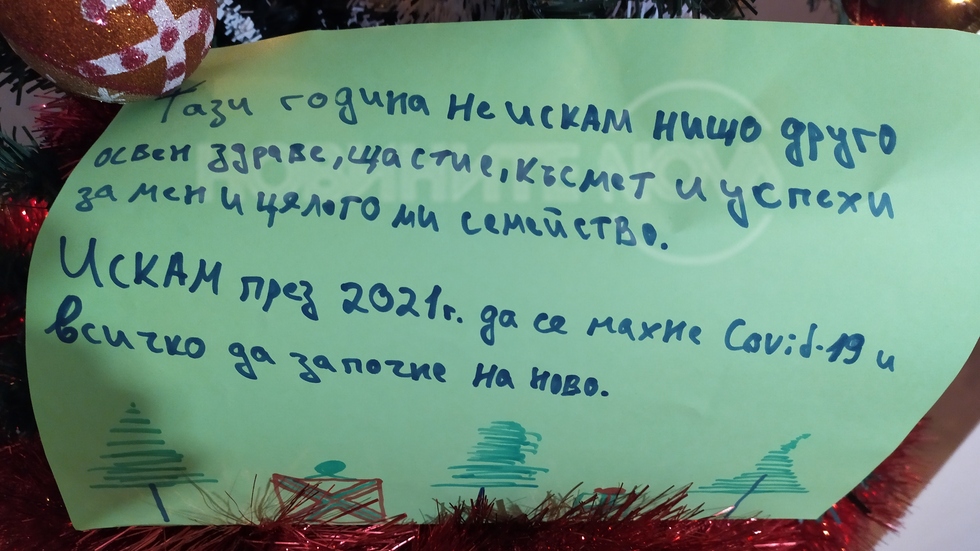 Тази година не искам нищо друго
освен здраве, щастие, късмет и успехи
за мен и цялото ми семейство.
Искам през 2021г. да се махне Covid-19 и
всичко да започне на ново.